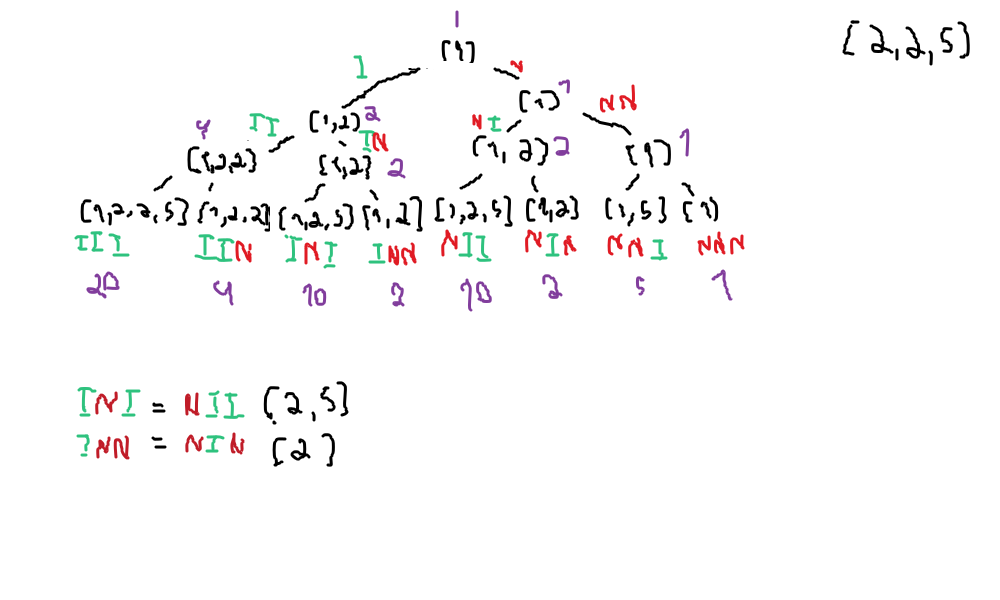 1
[1] [2,2,5]
I N
[1,2] 2 [1] 1 NN
4 II IN NI
[1,2,2] [1,2] 2 [1,2] 2 [1] 1
[1,2,2,5] [1,2,2] [1,2,5] [1,2] [1,2,5] [1,2] [1,5] [1]
III IIN INI INN NII NIN NNI NNN
20 4 10 2 10 2 5 1
INI = NII [2,5]
INN = NIN [2]